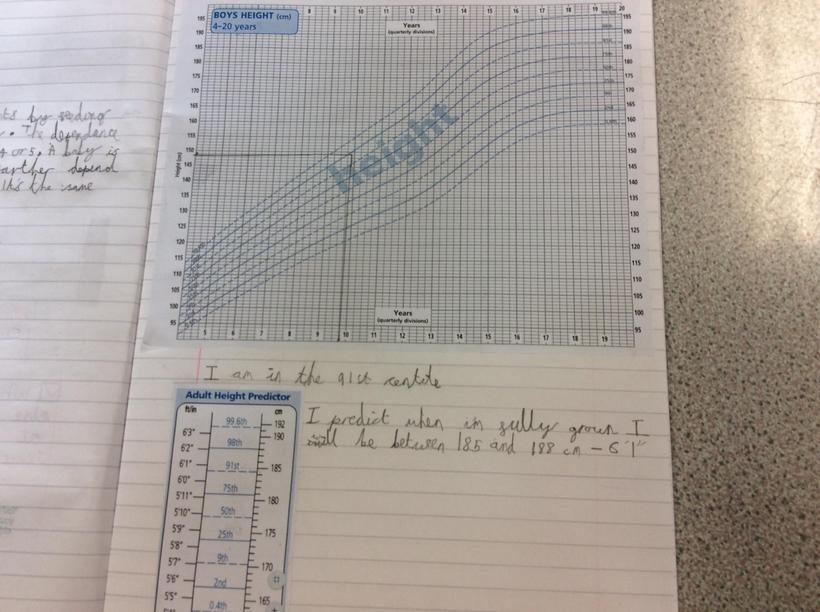 ts by
. The dependance
4 or 5. A
depend
the same
BOYS HEIGHT (cm)
4–20 years
8 9 10 11 12 13 14 15 16 17 18 19 20
Years
(quarterly divisions)
195
190
185
180
175
170
165
160
155
150
145
140
135
130
125
120
115
110
105
100
95
Height (cm)
height
195
190
185
180
175
170
165
160
155
150
145
140
135
130
125
120
115
110
105
100
95
Years
(quarterly divisions)
5 6 7 8 9 10 11 12 13 14 15 16 17 18 19
I am in the 91st centile
Adult Height Predictor
ft/in cm
99.6th 192
6'3" 190
98th
6'2"
6'1" 91st 185
6'0"
5'11" 75th 180
5'10" 50th
5'9" 175
25th
5'8"
5'7" 9th 170
5'6" 2nd
5'5" 0.4th 165
I predict when im fully grown I
will be between 185 and 188 cm – 6'1"